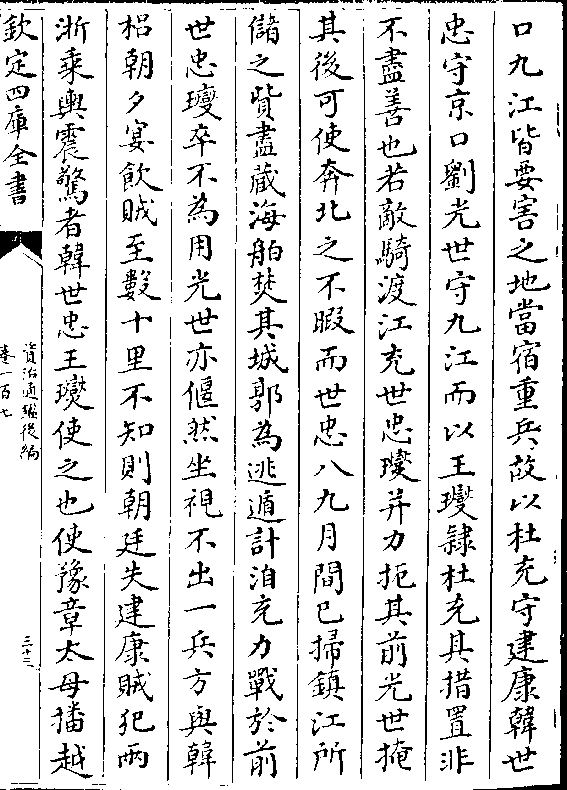 口九江皆要害之地當宿重兵故以杜充守建康韓世
忠守京口劉光世守九江而以王𤫉隷杜充其措置非
不盡善也若敵騎渡江充世忠𤫉并力扼其前光世掩
其後可使奔北之不暇而世忠八九月間已掃鎮江所
儲之貲盡蔵海舶焚其城郭為逃遁計洎充力戰於前
世忠𤫉卒不為用光世亦偃然坐視不出一兵方與韓
梠朝夕宴飲賊至數十里不知則朝廷失建康賊犯兩
浙乘輿震驚者韓世忠王𤫉使之也使豫章太母播越
欽定四庫全書
資治通鑑後編
卷一百七
三十三